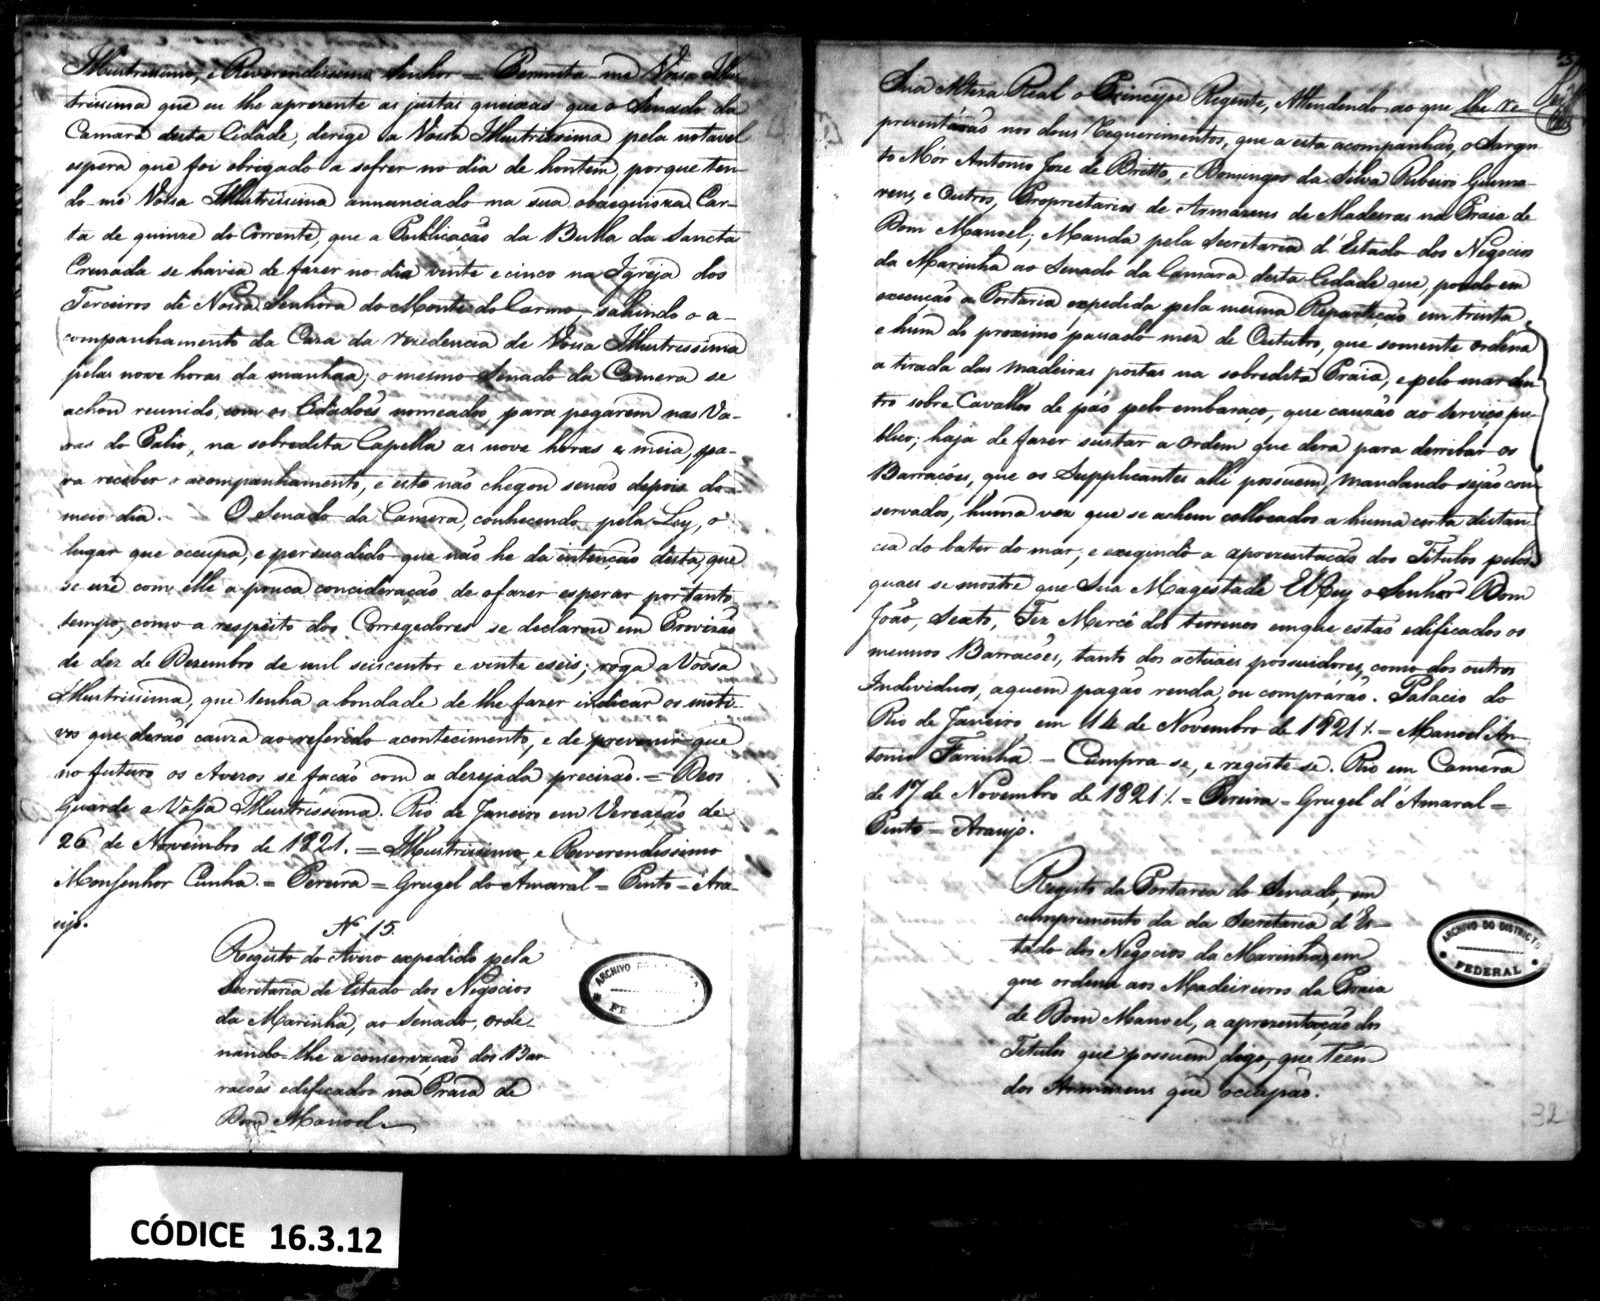 Illustrissimo, e Reverendissimo Senhor = Permita-me Vossa Illus-
trissima que eu lhe aprezente as justas queixas que o Senado da
Camara desta Cidade, derige a Vossa Illustrissima pela notavel
espera que foi obrigado a sofrer no dia de hontem, porque ten-
do-me Vossa Illustrissima annunciado na sua obzequioza Car-
ta de quinze do Corrente, que a Publicacão da Bulla da Sancta
Cruzada se havia de fazer no dia vinte e cinco na Igreja dos
Terceiros de Nossa Senhora do Monte do Carmo, sahindo o a-
companhamento da Caza da rezidencia de Vossa Illustrissima
pelas nove horas da manhaã; o mesmo Senado da Camera se
achou reunido, com os Cidadões nomeados, para pegarem nas Va-
ras do Palio, na sobredita Capella as nove horas e meia, pa-
ra receber o acompanhamento, e este não chegou senão depois do
meio dia. O Senado da Camera, conhecendo pela Ley, o
lugar que occupa, e persuadido que não he da intenção desta, que
se uze com elle a pouca concideração de o fazer esperar por tanto
tempo, como a respeito dos Corregedores se declarou em Provizão
de dez de Dezembro de mil seiscentos e vinte e seis; roga a Vossa
Illustrissima, que tenha a bondade de lhe fazer indicar os moti-
vos que derão cauza ao referido acontecimento, e de prevenir que
no futuro os Avizos se facão com a dezejada precizão. = Deos
Guarde a Vossa Illustrissima. Rio de Janeiro em Vereação de
26 de Novembro de 1821. = Illustrissimo, e Reverendissimo
Monsenhor Cunha. = Pereira = Grugel do Amaral = Pinto = Ara-
ujo.
Nº 15.
Registo do Avizo expedido pela
Secretaria de Estado dos Negocios
da Marinha, ao Senado, orde-
nando-lhe a conservação dos Bar-
racões edificados na Praia de
Dom Manoel.
Sua Alteza Real o Principe Regente, Attendendo ao que lhe re-
prezentárão nos dous Requerimentos, que a esta acompanhão, o Sargen-
to Mór Antonio Joze de Britto, e Domingos da Silva Ribeiro Guima-
rens, e Outros, Proprietarios de Armazens de Madeiras na Praia de
Dom Manoel; Manda pela Secretaria d'Estado dos Negocios
da Marinha ao Senado da Camara desta Cidade que, pondo em
execução a Portaria expedida pela mesma Repartição em trinta
e hum do proximo passado mez de Outubro, que somente ordena
a tirada das madeiras postas na sobredita Praia, e pelo mar den-
tro sobre Cavallos de páo pelo embaraço, que cauzão ao serviço pu-
blico; haja de fazer sustar a ordem que dera para derribar os
Barracões, que os Supplicantes alli possuem, mandando sejão con-
servados, huma vez que se achem collocados a huma certa distan-
cia do bater do mar; e exegindo a aprezentacão dos Titulos pelos
quaes se mostre que Sua Magestade ElRey o Senhor Dom
João, Sexto, Fez Mercê dos terrenos em que estão edificados os
mesmos Barracões, tanto dos actuaes possuidores, como dos outros
Individuos, a quem pagão renda, ou comprárão. Palacio do
Rio de Janeiro em 14 de Novembro de 1821 /. = Manoel An-
tonio Farinha. = Cumpra-se, e registe-se. Rio em Camera
de 17 de Novembro de 1821 /. = Pereira = Grugel d'Amaral =
Pinto = Araujo.
Registo da Portaria do Senado, em
cumprimento da da Secretaria d'Es-
tado dos Negocios da Marinha, em
que ordena aos Madeireiros da Praia
de Dom Manoel, a aprezentação dos
Titulos que possuem, digo, que tem
dos Armazens que occupão.
ARCHIVO DO
ARCHIVO DO DISTRICTO
FEDERAL
32
CÓDICE 16.3.12